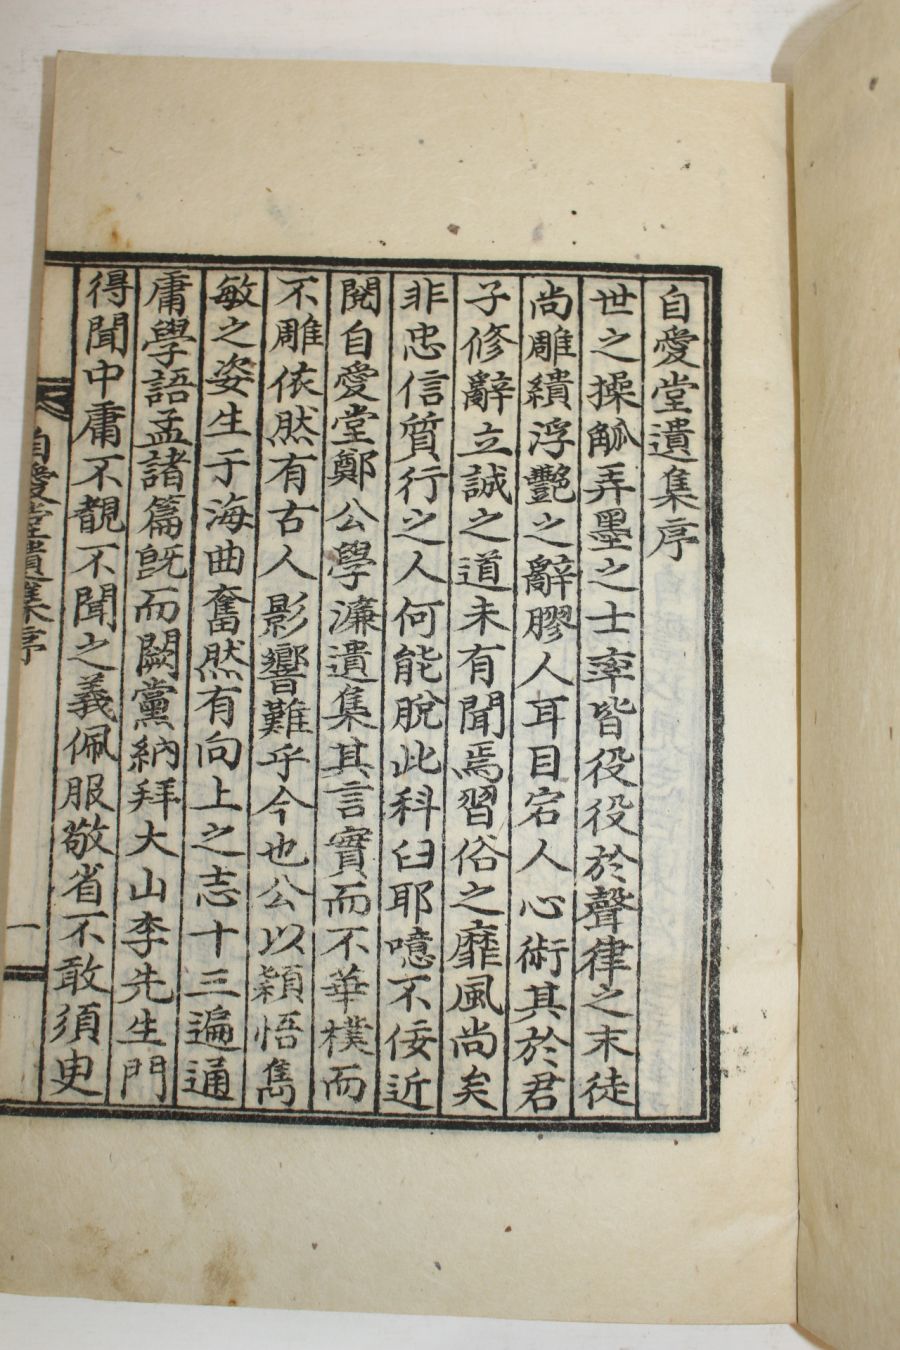 自愛堂遺集序
世之操觚弄墨之士率皆役役於聲律之末徒
尚雕繢浮艷之辭膠人耳目宕人心術其於君
子修辭立誠之道未有聞焉習俗之靡風尚矣
非忠信質行之人何能脫此科臼耶噫不佞近
閱自愛堂鄭公學濂遺集其言實而不華樸而
不雕依然有古人影響難乎今也公以穎悟雋
敏之姿生于海曲奮然有向上之志十三遍通
庸學語孟諸篇旣而闕黨納拜大山李先生門
得聞中庸不覩不聞之義佩服敬省不敢須臾
自愛堂遺集序
一